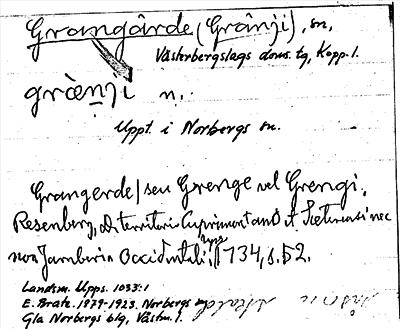 Grangärde (Gränji), sn,
Västerbergslags doms. tg, Kopp. l.
græ̀nji n.
Uppt. i Norbergs sn.
Grangerde / seu Grenge vel Grengi.
Resenberg, territorio Cuprimontano et nec
non Occidentali, 1734, s. 52.
Landsm. Upps. 1033:1
E. Brate. 1879-1923. Norbergs
Gla Norbergs blg, Västm. l.